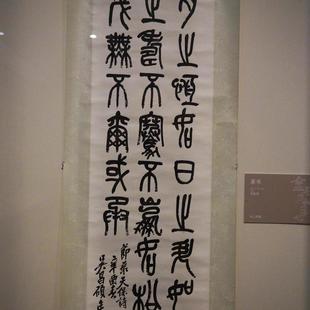 月之恆如日之升如
之壽不騫不崩如松
茂無不爾或承
節录天保詩
吳昌碩